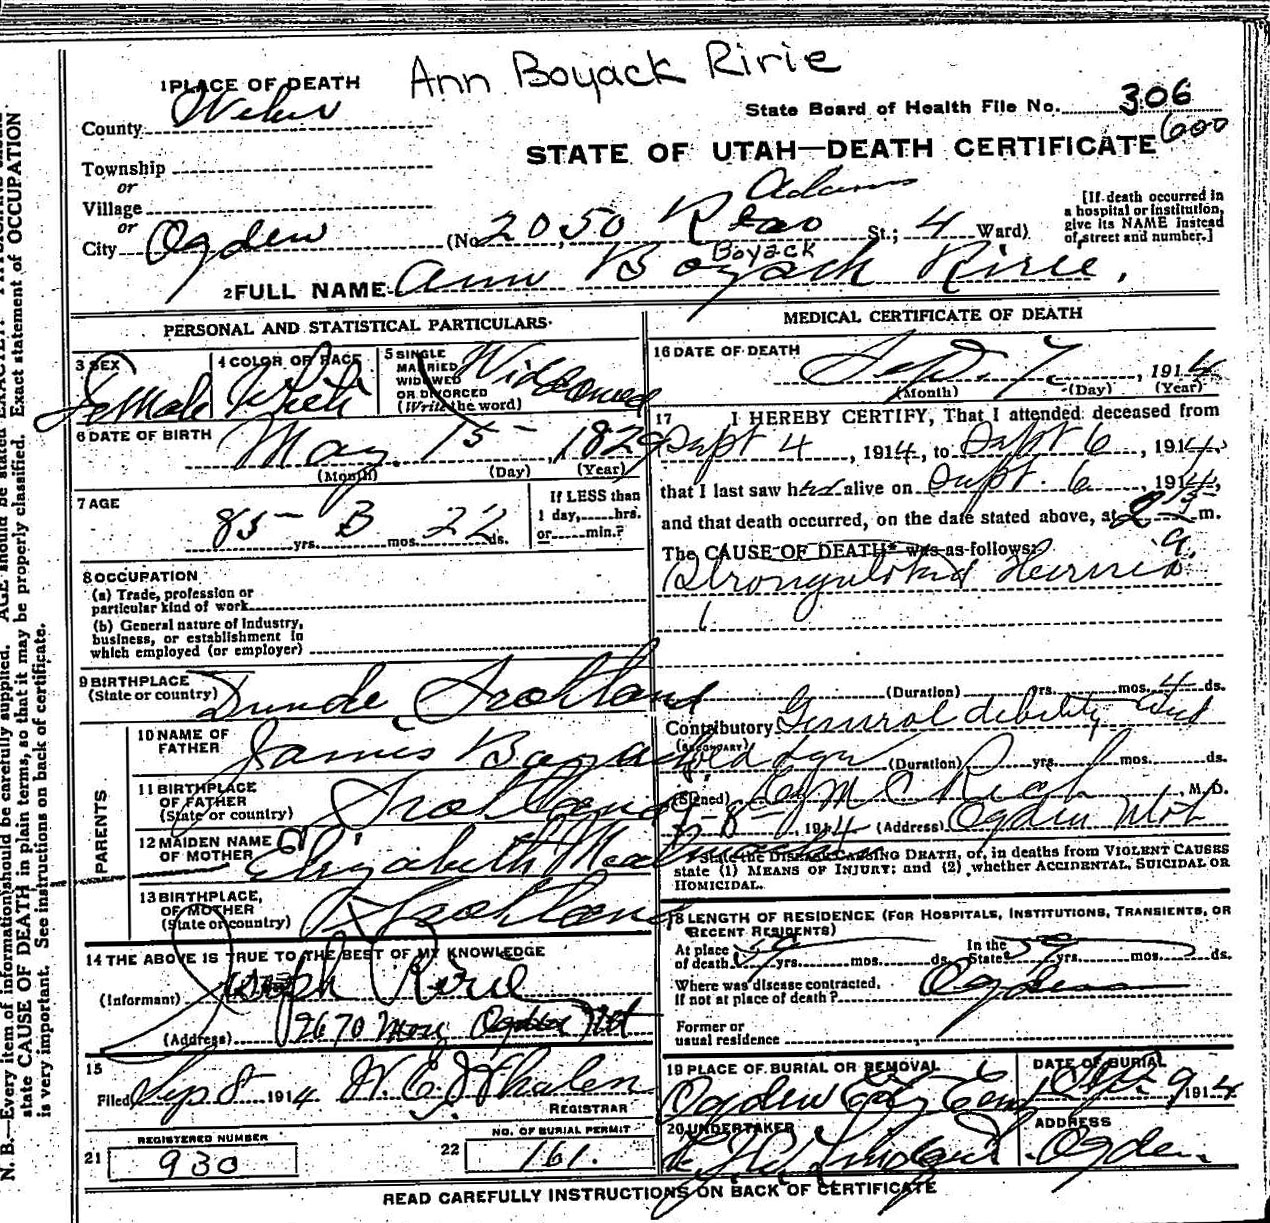 Ann Boyack Ririe
1 PLACE OF DEATH
County Weber
State Board of Health File No. 306
600
STATE OF UTAH—DEATH CERTIFICATE
Township
or
Village
or
City Ogden (No. 2050 Adams St.; 4 Ward)
[If death occurred in
a hospital or institution,
give its NAME instead
of street and number.]
Boyack
2 FULL NAME Ann Boyack Ririe,
PERSONAL AND STATISTICAL PARTICULARS
3 SEX Female
4 COLOR OR RACE White
5 SINGLE
MARRIED
WIDOWED
OR DIVORCED
(Write the word) Widowed
6 DATE OF BIRTH May 15 1829
(Month) (Day) (Year)
7 AGE
85 yrs. 3 mos. 22 ds.
If LESS than
1 day, hrs.
or min.?
8 OCCUPATION
(a) Trade, profession or
particular kind of work
(b) General nature of industry,
business, or establishment in
which employed (or employer)
9 BIRTHPLACE
(State or country) Dunde, Scotland
PARENTS
10 NAME OF
FATHER James Boyack
11 BIRTHPLACE
OF FATHER
(State or country) Scotland
12 MAIDEN NAME
OF MOTHER Elizabeth
13 BIRTHPLACE,
OF MOTHER
(State or country) Scotland
14 THE ABOVE IS TRUE TO THE BEST OF MY KNOWLEDGE
(Informant) Joseph Ririe
(Address) 2670 Ogden
15
Filed Sep 8 1914
REGISTRAR
REGISTERED NUMBER
21 930
NO. OF BURIAL PERMIT
22 161.
MEDICAL CERTIFICATE OF DEATH
16 DATE OF DEATH Sept. 7, 1914
(Month) (Day) (Year)
17 I HEREBY CERTIFY, That I attended deceased from
Sept 4, 1914, to Sept 6, 1914,
that I last saw her alive on Sept. 6, 1914,
and that death occurred, on the date stated above, at m.
The CAUSE OF DEATH* was as follows:
Strangulated Hernia
(Duration) yrs. mos. 4 ds.
Contributory General debility and
(SECONDARY) old age (Duration) yrs. mos. ds.
(Signed) Rich, M.D.
9-8-, 1914 (Address) Ogden Utah
*State the DISEASE CAUSING DEATH, or, in deaths from VIOLENT CAUSES
state (1) MEANS OF INJURY; and (2) whether ACCIDENTAL, SUICIDAL OR
HOMICIDAL.
18 LENGTH OF RESIDENCE (FOR HOSPITALS, INSTITUTIONS, TRANSIENTS, OR
RECENT RESIDENTS)
At place
of death 59 yrs. mos. ds. In the
State 59 yrs. mos. ds.
Where was disease contracted,
if not at place of death? Ogden
Former or
usual residence
19 PLACE OF BURIAL OR REMOVAL
Ogden City Cem
DATE OF BURIAL
Sept. 9 1914
20 UNDERTAKER
Lindquist
ADDRESS
Ogden.
READ CAREFULLY INSTRUCTIONS ON BACK OF CERTIFICATE
N. B.—Every item of information should be carefully supplied. AGE should be stated EXACTLY.
state CAUSE OF DEATH in plain terms, so that it may be properly classified. Exact statement of OCCUPATION
is very important. See instructions on back of certificate.